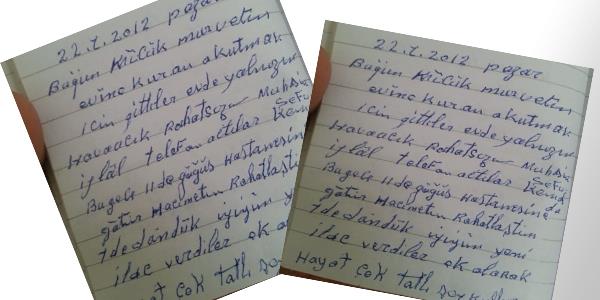 22.7.2012 pazar
Bugün Küçük murvetin
evine kuran okutmak
icin gittiler evde yalnızım
Havacık Rahatsızım Muhsin
telefon attılar Sefu
Bugece 11 de göğüs Hastanesine
götür Rahatlattın
7 de döndük iyiyim yeni
ilac verdiler ek olarak
Hayat çok tatlı
22.7.2012 pazar
Bugün Küçük murvetin
evine kuran okutmak
icin gittiler evde yalnızım
Havacık Rahatsızım Muhsin
telefon attılar Sefu
Bugece 11 de göğüs Hastanesine
götür Rahatlattın
7 de döndük iyiyim yeni
ilac verdiler ek olarak
Hayat çok tatlı